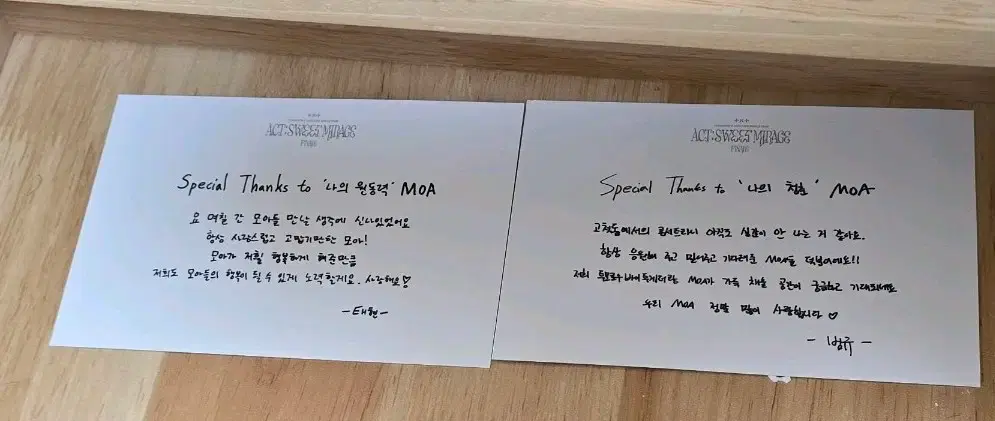 ACT:SWEET MIRAGE
FINALE
Special Thanks to '나의 원동력' MOA
요 며칠 간 모아들 만날 생각에 신나있었어요
항상 사랑스럽고 고맙기만한 모아!
모아가 저희를 행복하게 해준만큼
저희도 모아들의 행복이 될 수 있게 노력할게요. 사랑해요♡
-태현-
ACT:SWEET MIRAGE
FINALE
Special Thanks to '나의 청춘' MOA
고척돔에서의 콘서트라니 아직도 실감이 안 나는 거 같아요.
항상 응원해 주고 믿어주고 기다려준 MOA들 덕분이에요!!
저희 투모로우바이투게더랑 MOA가 가득 채울 공간이 궁금하고 기대되네요
우리 MOA 정말 많이 사랑합니다♡
- 범규 -